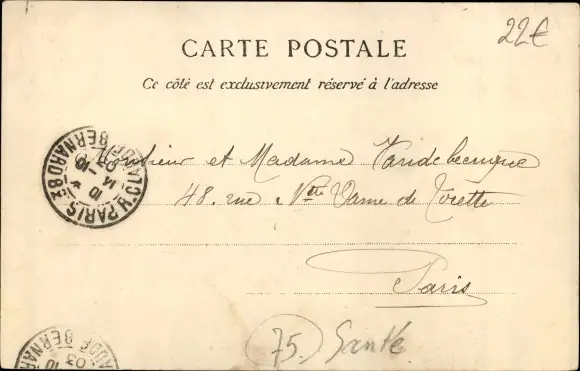 22€
CARTE POSTALE
Ce côté est exclusivement réservé à l'adresse
PARIS R. CLAUDE BERNARD
Monsieur et Madame Vandebeuque
48. rue Ntre Dame de Lorette
Paris
75. Santé
CLAUDE BERNARD
03